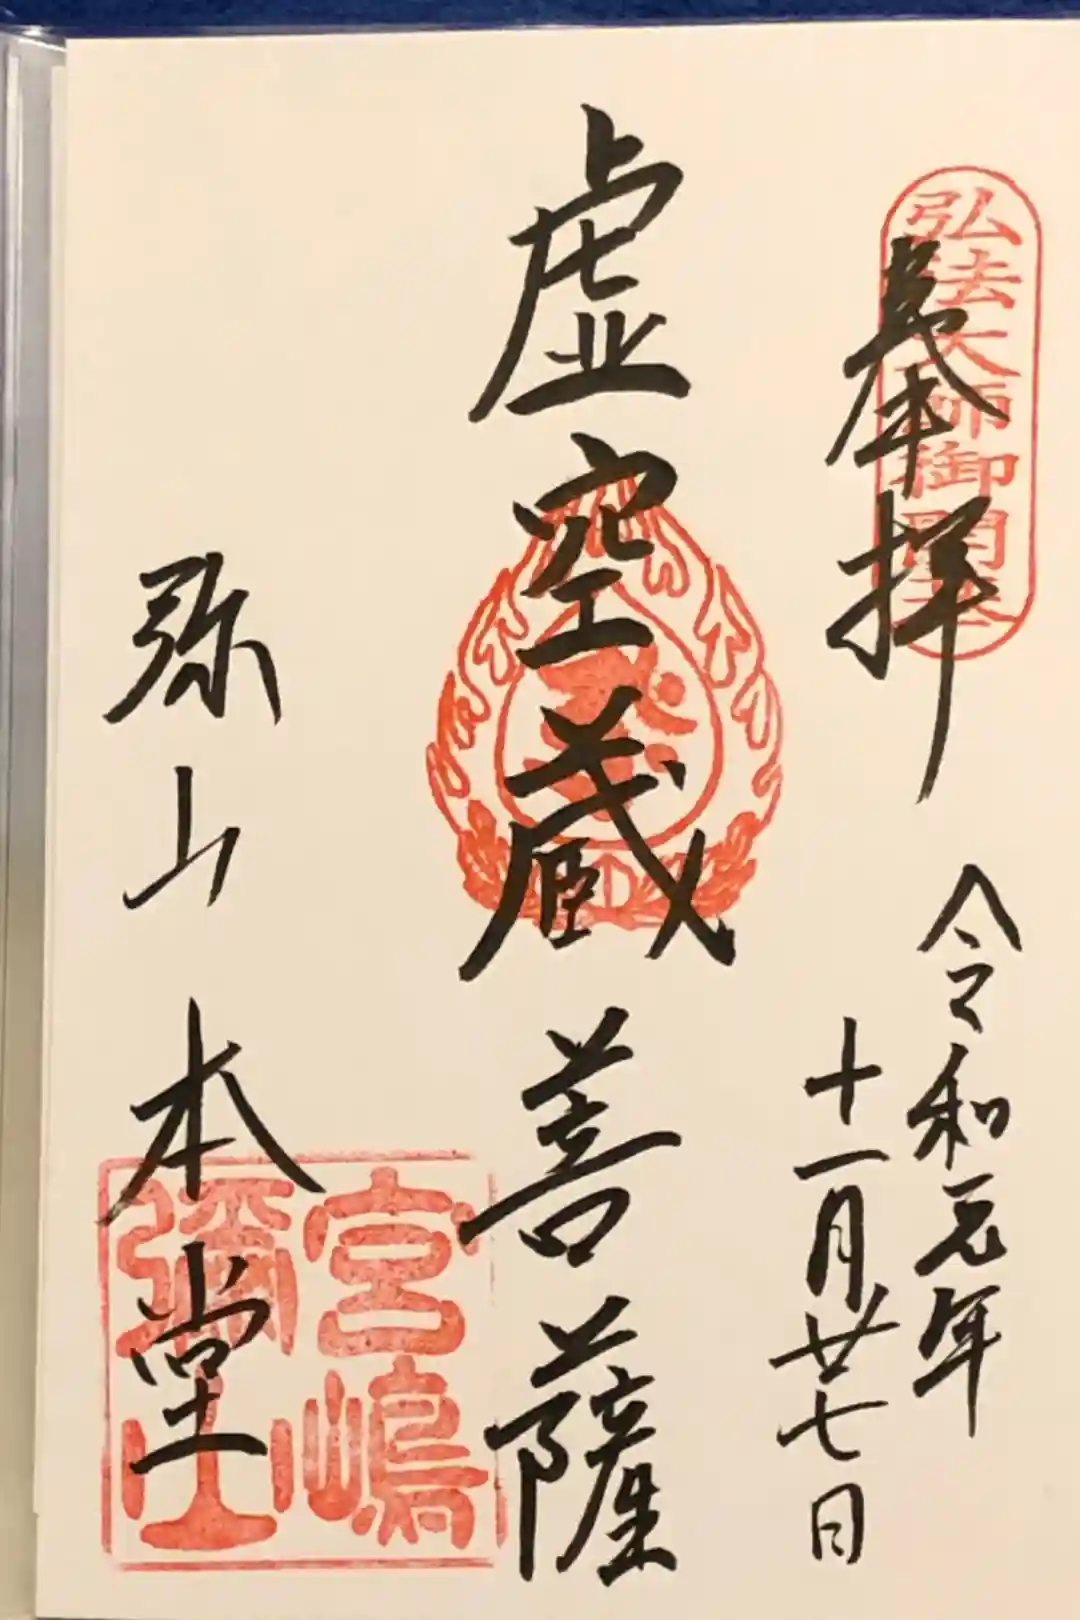 弘法大師御開基
奉拝
令和元年
十一月廿七日
虚空蔵菩薩
弥山本堂
宮嶋
彌山